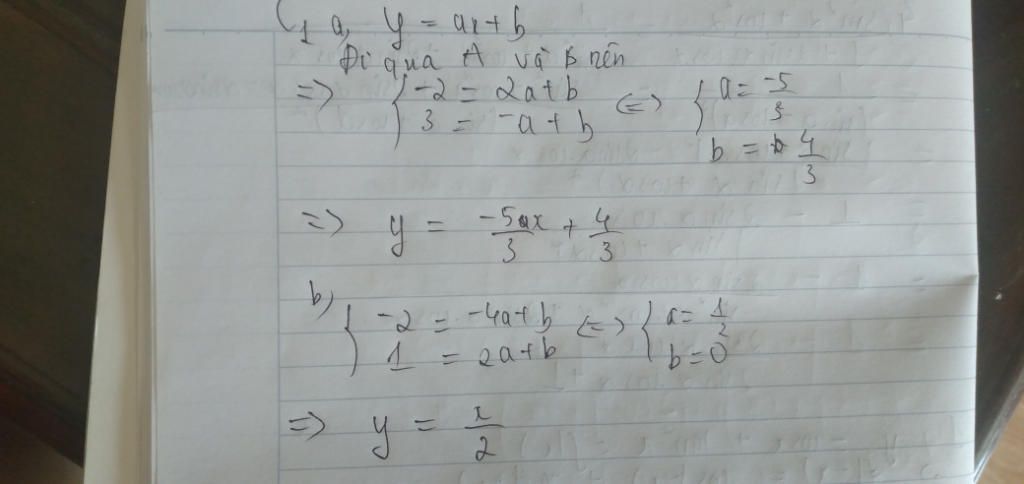 C₁ a, y = ax + b
Đi qua A và B nên
=> { -2 = 2a + b <=> { a = -5/3
3 = -a + b
b = 4/3
=> y = -5x/3 + 4/3
b) { -2 = -4a + b <=> { a = 1/2
1 = 2a + b b = 0
=> y = x/2